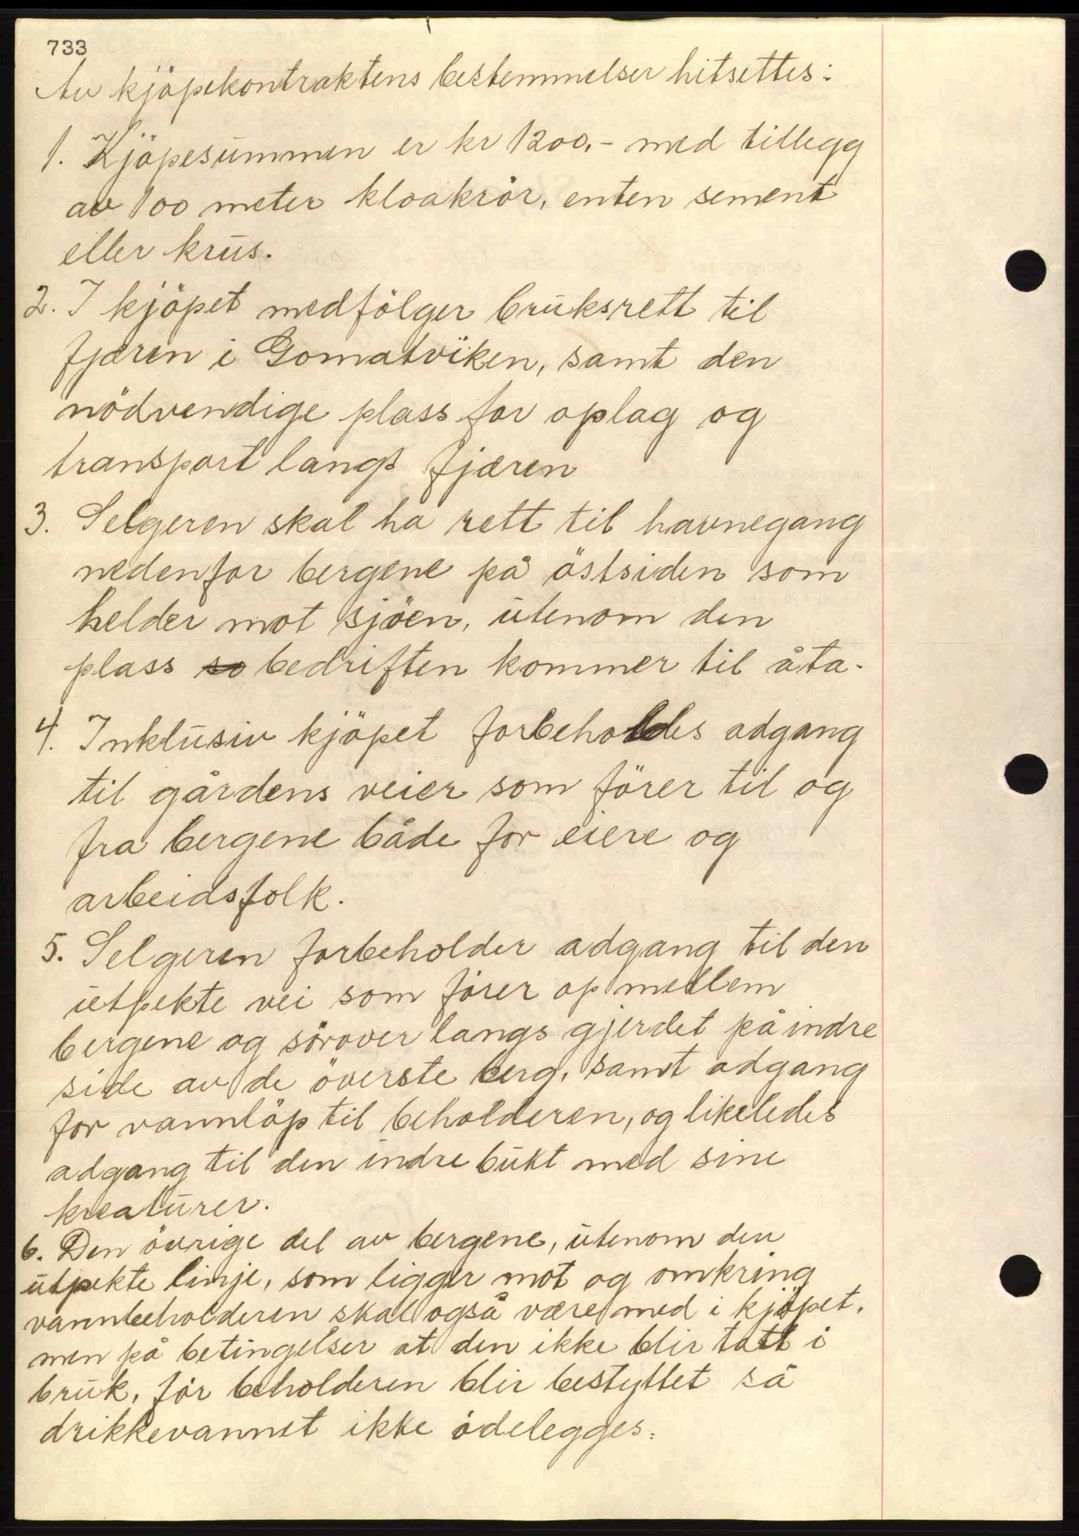 733
Av kjöpekontraktens bestemmelser hitsettes:
1. Kjöpesummen er kr 1200,- med tillegg
av 100 meter kloakrör, enten sement
eller krus.
2. I kjöpet medfölger bruksrett til
fjæren i Gomatviken, samt den
nödvendige plass for oplag og
transport langs fjæren
3. Selgeren skal ha rett til havnegang
nedenfor bergene på östsiden som
helder mot sjöen, utenom den
plass so bedriften kommer til å ta.
4. Inklusiv kjöpet forbeholdes adgang
til gårdens veier som förer til og
fra bergene både for eiere og
arbeidsfolk.
5. Selgeren forbeholder adgang til den
utpekte vei som förer op mellem
bergene og sörover langs gjerdet på indre
side av de överste berg, samt adgang
for vannlöp til beholderen, og likeledes
adgang til den indre bukt med sine
kreaturer.
6. Den övrige del av bergene, utenom den
utpekte linje, som ligger mot og omkring
vannbeholderen skal også være med i kjöpet,
men på betingelser at den ikke blir tatt i
bruk, för beholderen blir bestyttet så
drikkevannet ikke ödelegges.